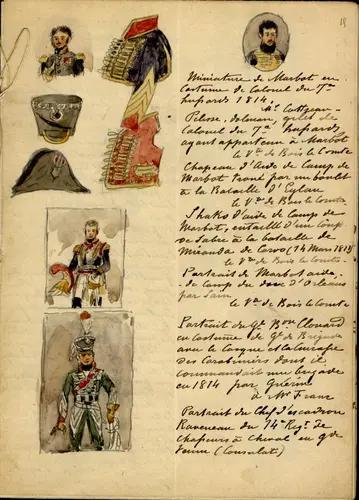 18
Miniature de Marbot en
costume de Colonel du 7me
husards 1814
Mr Cottreau
Pelisse, dolman, gilet de
Colonel du 7me husards
ayant appartenu à Marbot
le Vte de Bois le Comte
Chapeau d'Aide de Camp de
Marbot troué par un boulet
à la Bataille d'Eylau
le Vte de Bois le Comte
Shako d'aide de camp de
Marbot, entaillé d'un coup
de sabre à la bataille de
Miranda de Corvo (14 Mars 1811)
le Vte de Bois le Comte
Portrait de Marbot aide
de camp du duc d'Orleans
par
le Vte de Bois le Comte
Portrait du Gl Bon Clouard
en costume de Gl de Brigade
avec le casque et la cuirasse
des Carabiniers dont il
commandait une brigade
en 1814 par Guérin
à Mr Franc
Portrait du Chef d'escadron
Raveneau du 14e Regt de
Chasseurs à Cheval en gde
tenue (Consulat)